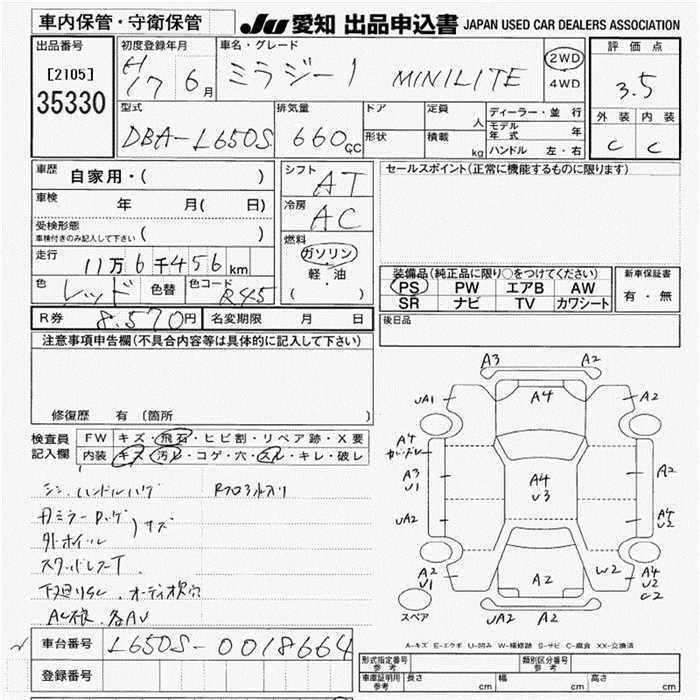 車内保管・守衛保管
JU 愛知 出品申込書 JAPAN USED CAR DEALERS ASSOCIATION
出品番号
[2105]
35330
初度登録年月
H17 6月
車名・グレード
ミラジーノ MINILITE
2WD
4WD
評価点
3.5
外装 内装
C C
型式
DBA-L650S
排気量
660cc
ドア
形状
定員 人
積載 kg
ディーラー・並行
モデル年式 年
ハンドル 左・右
車歴 自家用・( )
車検 年 月( 日)
受検形態
車検付きのみ記入して下さい ( )
走行 11万6千456km
色 レッド 色替 色コード R45
シフト AT
冷房 AC
燃料
ガソリン
軽・油
( )
セールスポイント(正常に機能するものに限ります)
装備品(純正品に限り○をつけてください)
PS PW エアB AW
SR ナビ TV カワシート
新車保証書
有・無
R券 8.570円 名変期限 月 日
後日品
注意事項申告欄(不具合内容等は具体的に記入して下さい)
修復歴 有 (箇所 )
検査員記入欄
FW キズ・飛石・ヒビ割・リペア跡・X要
内装 キズ・汚レ・コゲ・穴・スレ・キレ・破レ
外ホイール
スタッドレスT.
下廻りSC. オーディオ次穴
車台番号 L650S-0018664
登録番号
A3 A2
UA1 A4 A2
A4
A3 U1 A4 U3 A2
UA2 A4 U2
A2 U1 A2 W2 A4 U2 C2
スペア UA2 A2
A-キズ E-エクボ U-凹み W-補修跡 S-サビ C-腐食 XX-交換済
形式指定番号 参考 類別区分番号 参考
車庫証明用 参考 長さ cm 幅 cm 高さ cm